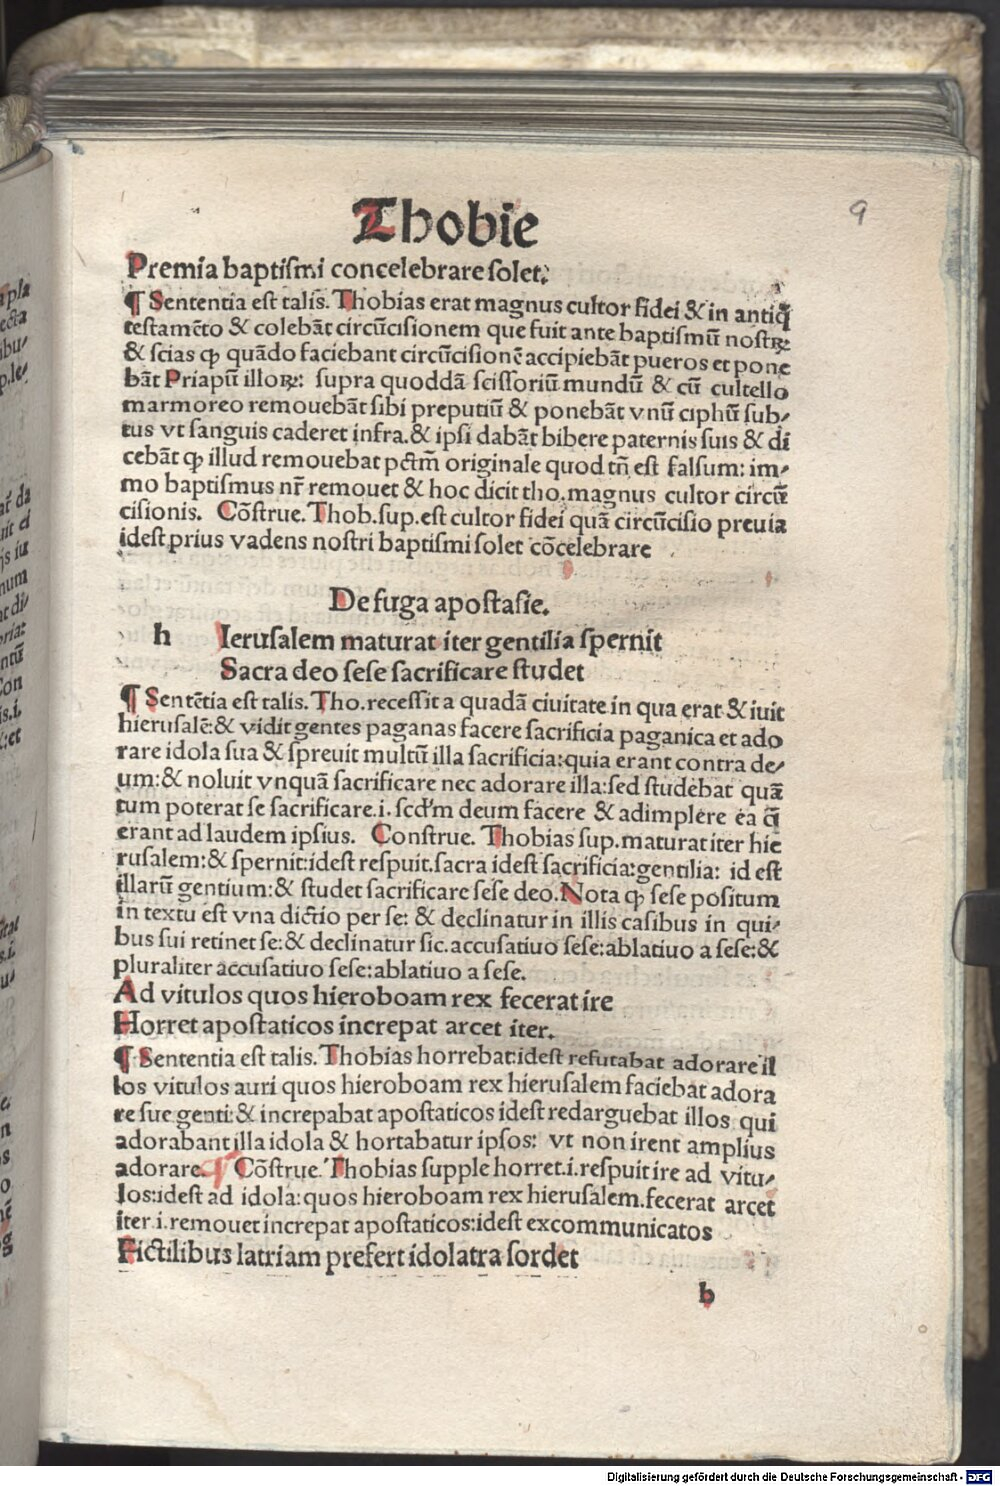 Thobie
9
Premia baptiſmi concelebrare ſolet.
¶ Sententia eſt talis. Thobias erat magnus cultor fidei & in antiq̃
teſtamẽto & colebãt circũciſionem que fuit ante baptiſmũ noſtrꝝ
& ſcias ꝙ quãdo faciebant circũciſionẽ accipiebãt pueros et pone
bãt Priapũ illoꝝ: ſupra quoddã ſciſſoriũ mundũ & cũ cultello
marmoreo remouebãt ſibi preputiũ & ponebãt vnũ ciphũ ſub⸗
tus vt ſanguis caderet infra.& ipſi dabãt bibere paternis ſuis & di
cebãt ꝙ illud remouebat pctm̃ originale quod tñ eſt falſum: im⸗
mo baptiſmus nr̃ remouet & hoc dicit tho.magnus cultor circũ
ciſionis. Cõſtrue. Thob.ſup.eſt cultor fidei quã circũciſio preuia
ideſt prius vadens noſtri baptiſmi ſolet cõcelebrare
De fuga apoſtaſie.
h Ieruſalem maturat iter gentilia ſpernit
Sacra deo ſeſe ſacrificare ſtudet
¶ Sentẽtia eſt talis. Tho.receſſit a quadã ciuitate in qua erat & iuit
hieruſalẽ:& vidit gentes paganas facere ſacrificia paganica et ado
rare idola ſua & ſpreuit multũ illa ſacrificia:quia erant contra de⸗
um:& noluit vnquã ſacrificare nec adorare illa:ſed ſtudebat quã
tum poterat ſe ſacrificare.i.ſcd'm deum facere & adimplere ea q̃
erant ad laudem ipſius. Conſtrue. Thobias ſup.maturat iter hie
ruſalem:& ſpernit:ideſt reſpuit.ſacra ideſt ſacrificia:gentilia: id eſt
illarũ gentium:& ſtudet ſacrificare ſeſe deo.Nota ꝙ ſeſe poſitum
in textu eſt vna dictio per ſe: & declinatur in illis caſibus in qui⸗
bus ſui retinet ſe:& declinatur ſic.accuſatiuo ſeſe:ablatiuo a ſeſe:&
pluraliter accuſatiuo ſeſe:ablatiuo a ſeſe.
Ad vitulos quos hieroboam rex fecerat ire
Horret apoſtaticos increpat arcet iter.
¶ Sententia eſt talis. Thobias horrebat:ideſt refutabat adorare il
los vitulos auri quos hieroboam rex hieruſalem faciebat adora
re ſue genti:& increpabat apoſtaticos ideſt redarguebat illos qui
adorabant illa idola & hortabatur ipſos: vt non irent amplius
adorare. ¶ Cõſtrue. Thobias ſupple horret.i.reſpuit ire ad vitu⸗
los:ideſt ad idola:quos hieroboam rex hieruſalem.fecerat arcet
iter.i.remouet increpat apoſtaticos:ideſt excommunicatos
Fictilibus latriam prefert idolatra ſordet
b
Digitalisierung gefördert durch die Deutsche Forschungsgemeinschaft - DFG